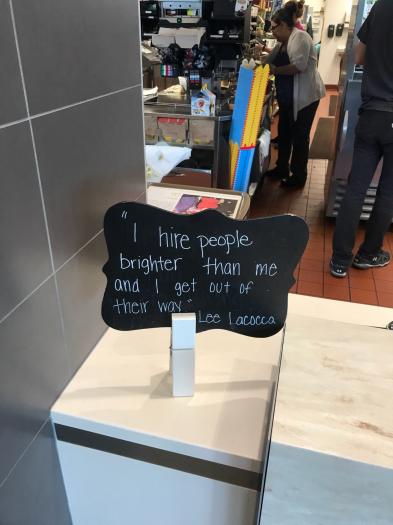 "I hire people
brighter than me
and I get out of
their way."
Lee Lacocca